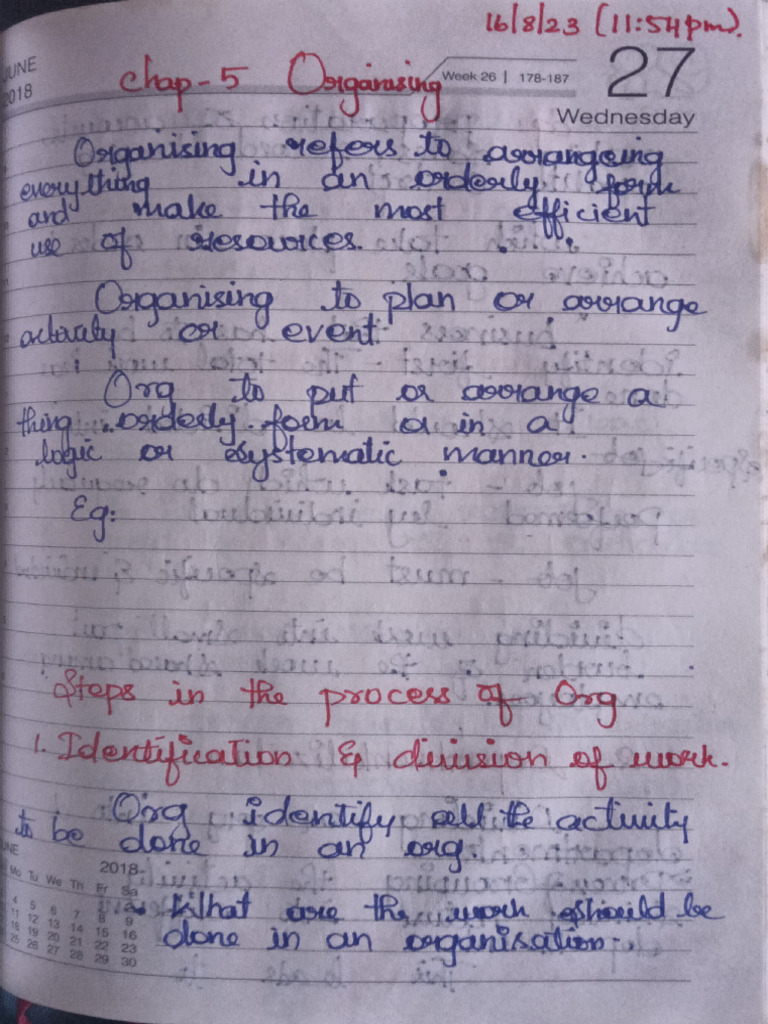 16/8/23 (11:54pm).
JUNE
2018
Chap-5 Organising
Week 26 | 178-187
27
Wednesday
Organising refers to arrangeing
everything in an orderly form
and make the most efficient
use of resources.
Organising to plan or arrange
activity or event
Org to put or arrange a
thing orderly form or in a
logic or systematic manner.
Eg:
Steps in the process of Org
1. Identification & division of work.
Org identify all the activity
to be done in an org.
2018
Mo Tu We Th Fr Sa
4 5 6 7 8 9
11 12 13 14 15 16
18 19 20 21 22 23
25 26 27 28 29 30
What are the work should be
done in an organisation.